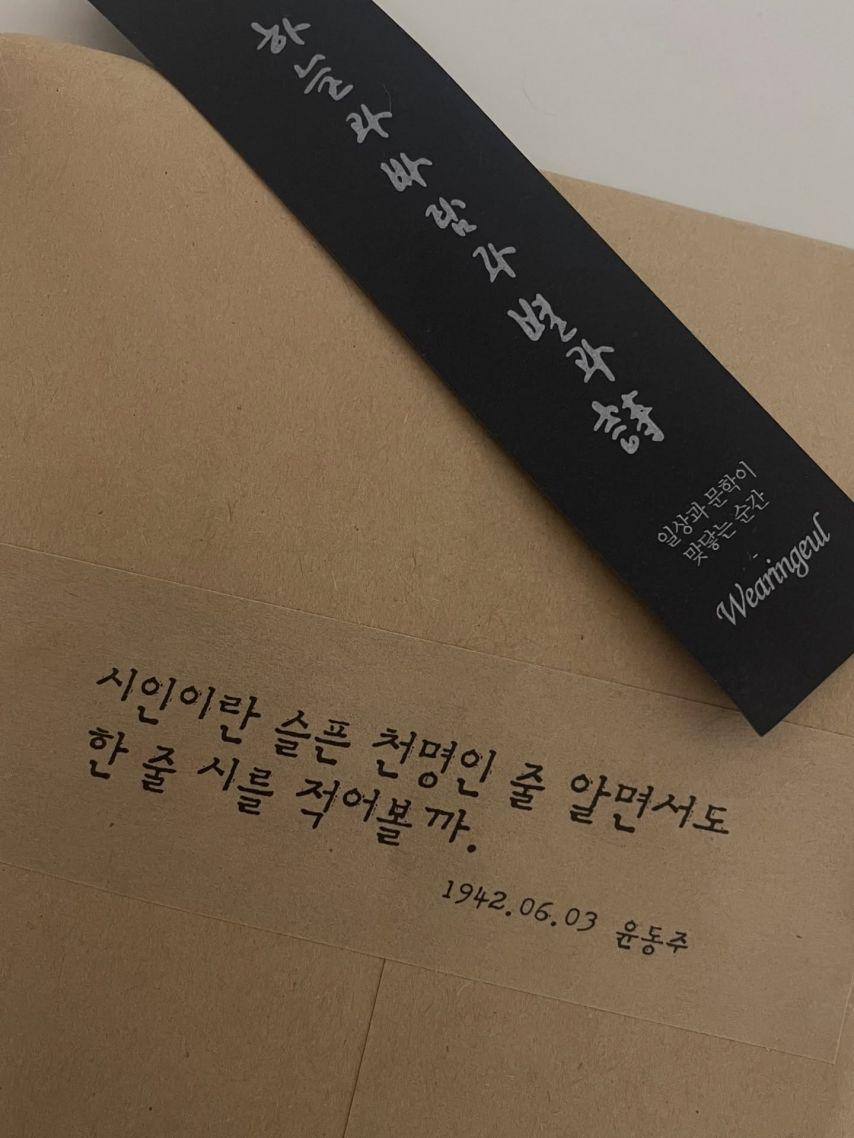 하늘과 바람과 별과 詩
일상과 문학이
맞닿는 순간
Wearingeul
시인이란 슬픈 천명인 줄 알면서도
한 줄 시를 적어볼까.
1942.06.03 윤동주